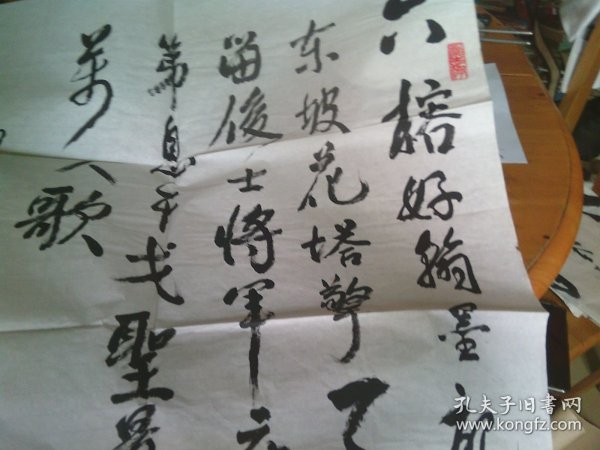 六榕好翰墨
东坡花塔擎
留後士将军
第息干戈聖
萬人歌
孔夫子旧书网
www.kongfz.com